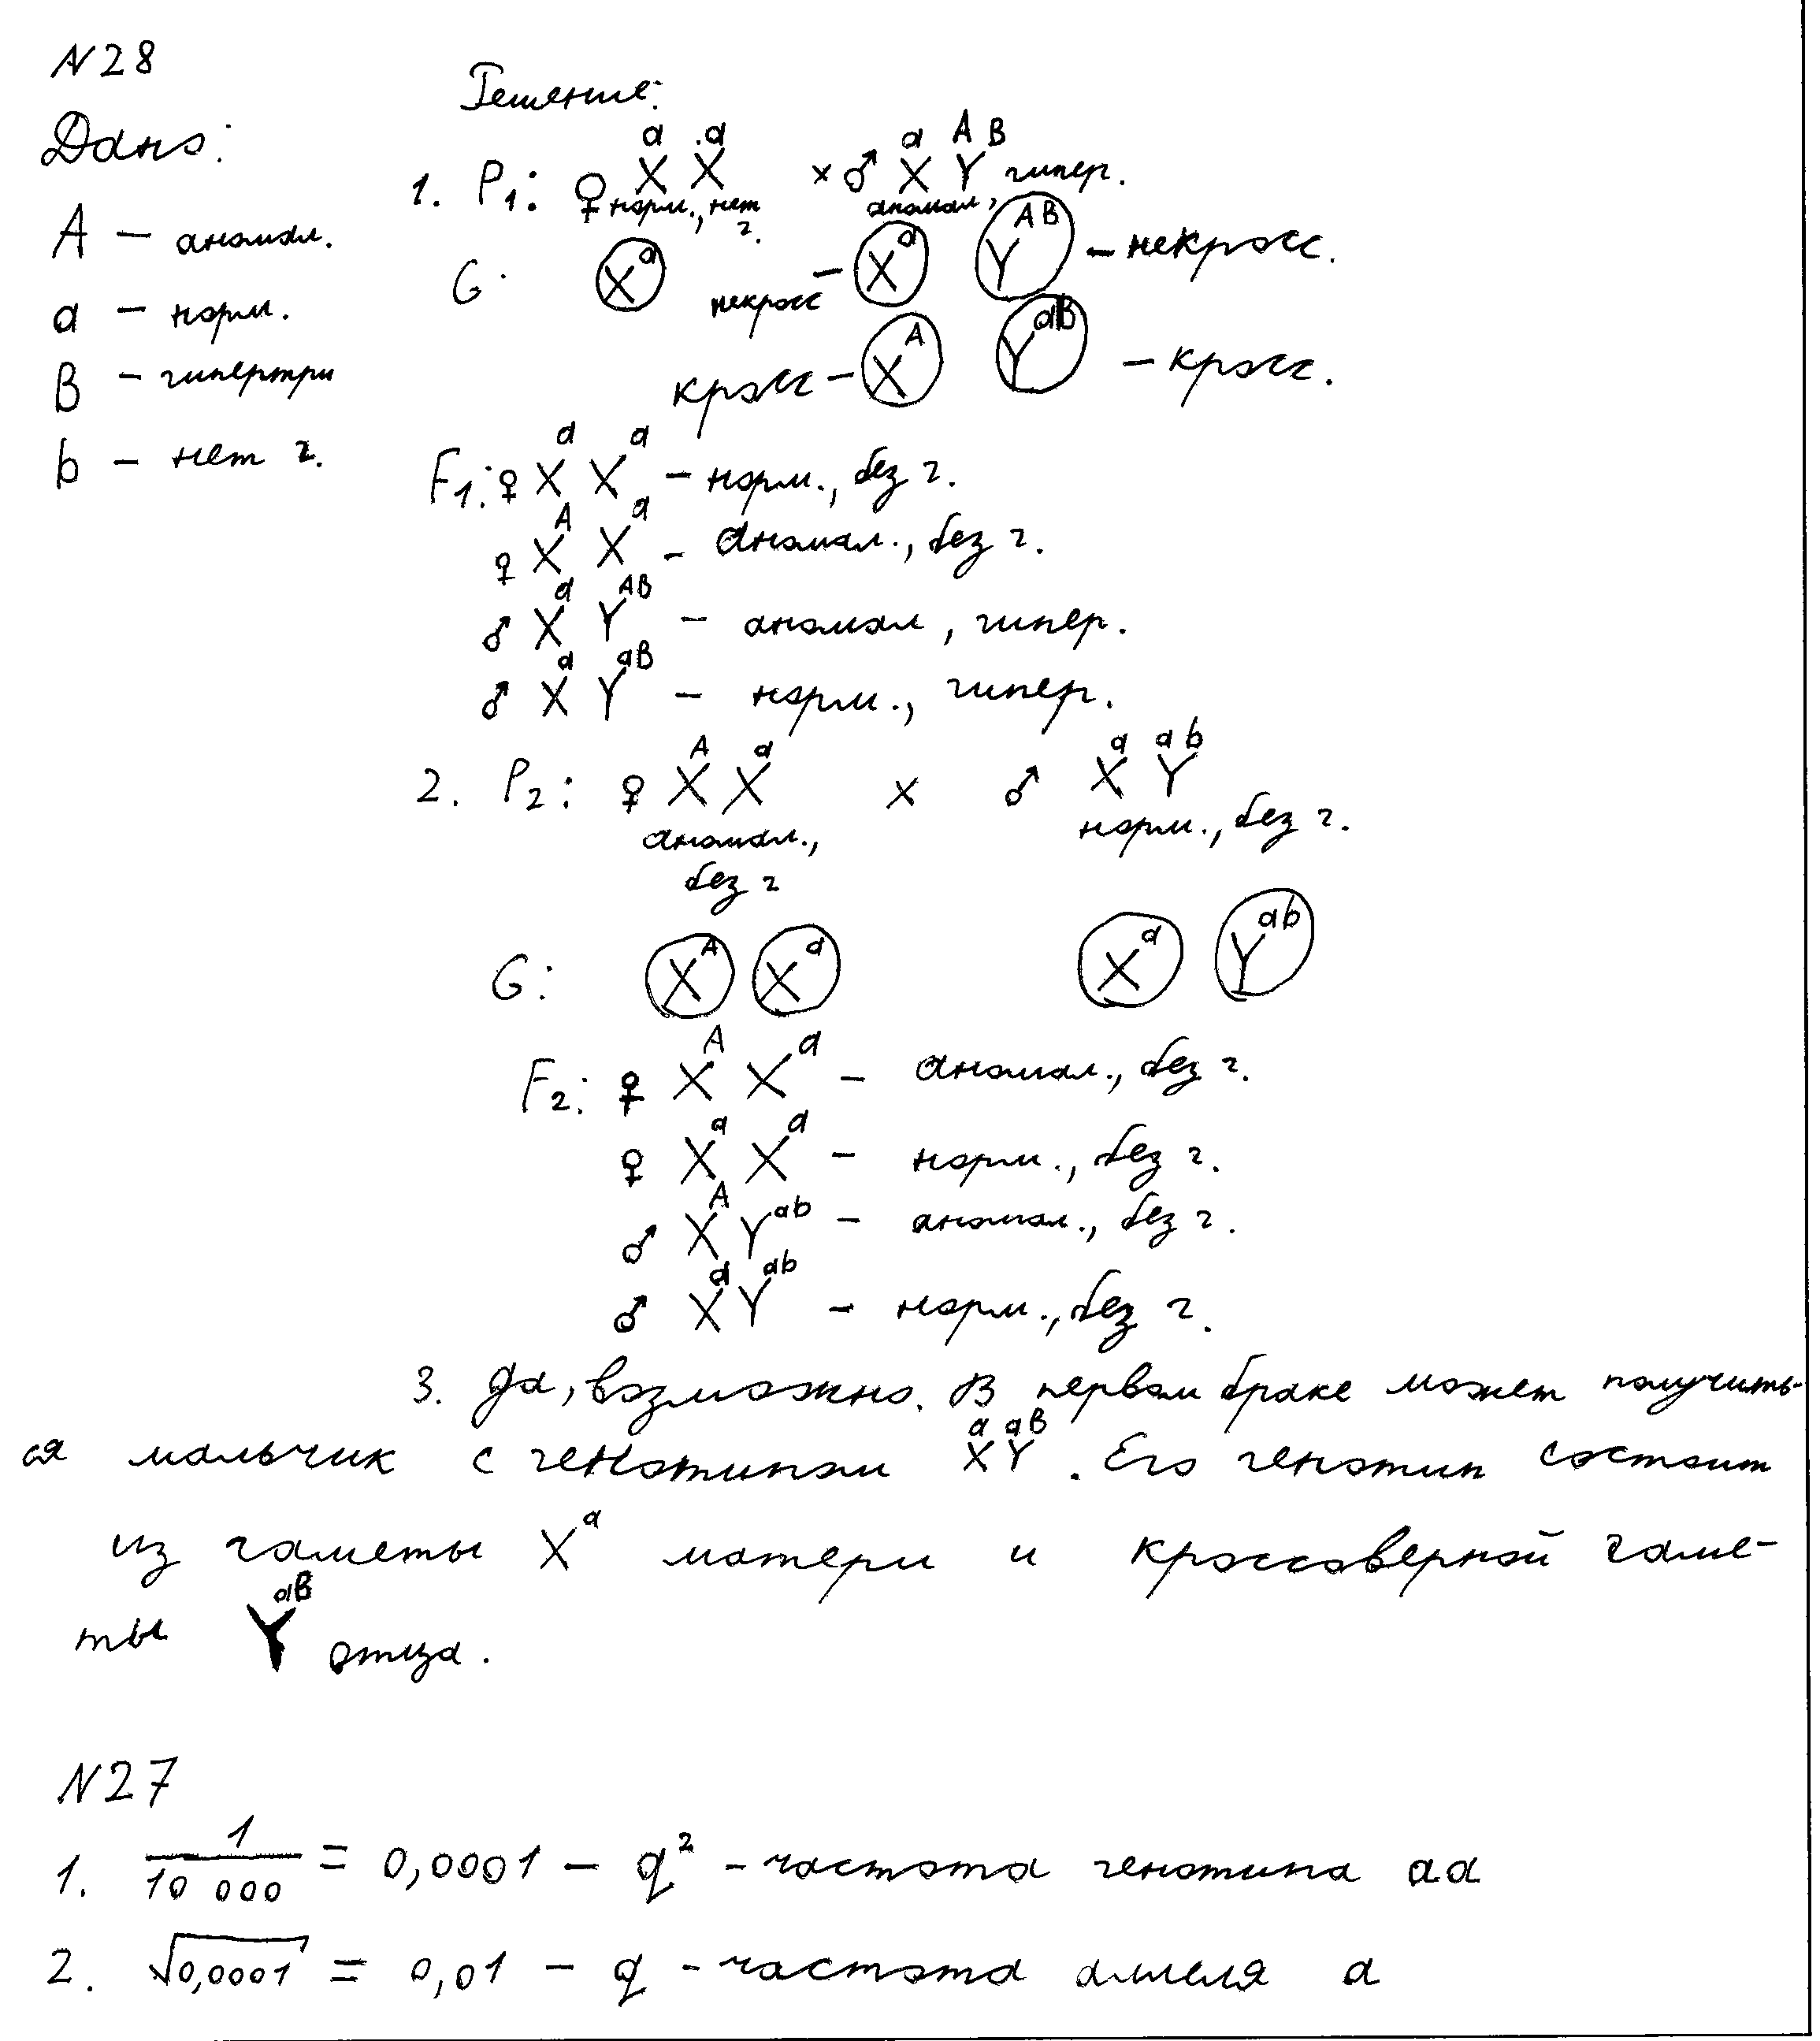 N28
Решение:
Дано:
A – аномал.
a – норм.
B – гипертри
b – нет г.
1. P₁: ♀ XᵃXᵃ × ♂ XᵃYᴬᴮ гипер.
норм., нет г. аномал,
G: Xᵃ некросс – Xᵃ Yᴬᴮ – некросс.
кросс – Xᴬ Yᵃᴮ – кросс.
F₁: ♀ XᵃXᵃ – норм., без г.
♀ XᴬXᵃ – аномал., без г.
♂ XᵃYᴬᴮ – аномал, гипер.
♂ XᵃYᵃᴮ – норм., гипер.
2. P₂: ♀ XᴬXᵃ × ♂ XᵃYᵃᵇ
аномал., без г норм., без г.
G: Xᴬ Xᵃ Xᵃ Yᵃᵇ
F₂: ♀ XᴬXᵃ – аномал., без г.
♀ XᵃXᵃ – норм., без г.
♂ XᴬYᵃᵇ – аномал., без г.
♂ XᵃYᵃᵇ – норм., без г.
3. Да, возможно. В первом браке может получить-
ся мальчик с генотипом XᵃYᵃᴮ. Его генотип состоит
из гаметы Xᵃ матери и кроссоверной гаме-
ты Yᵃᴮ отца.
N27
1. 1/10 000 = 0,0001 – q² – частота генотипа aa
2. √0,0001 = 0,01 – q – частота аллеля a